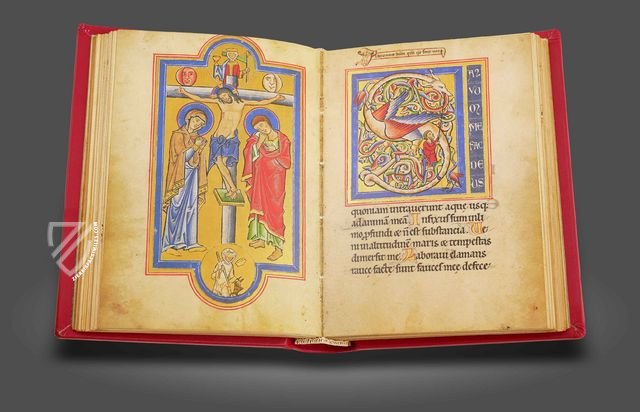 AL
VUM
ME
FAC
DEUS
quoniam intraverunt aque usq;
ad animam mea
Infixus sum in li
mo p fundi & n est substantia. Ve
ni in altitudinem maris & tempestas
dimersit me. Laboravi clamans
rauce facte sunt fauces mee defece
ZIEREISFACSIMILES.COM